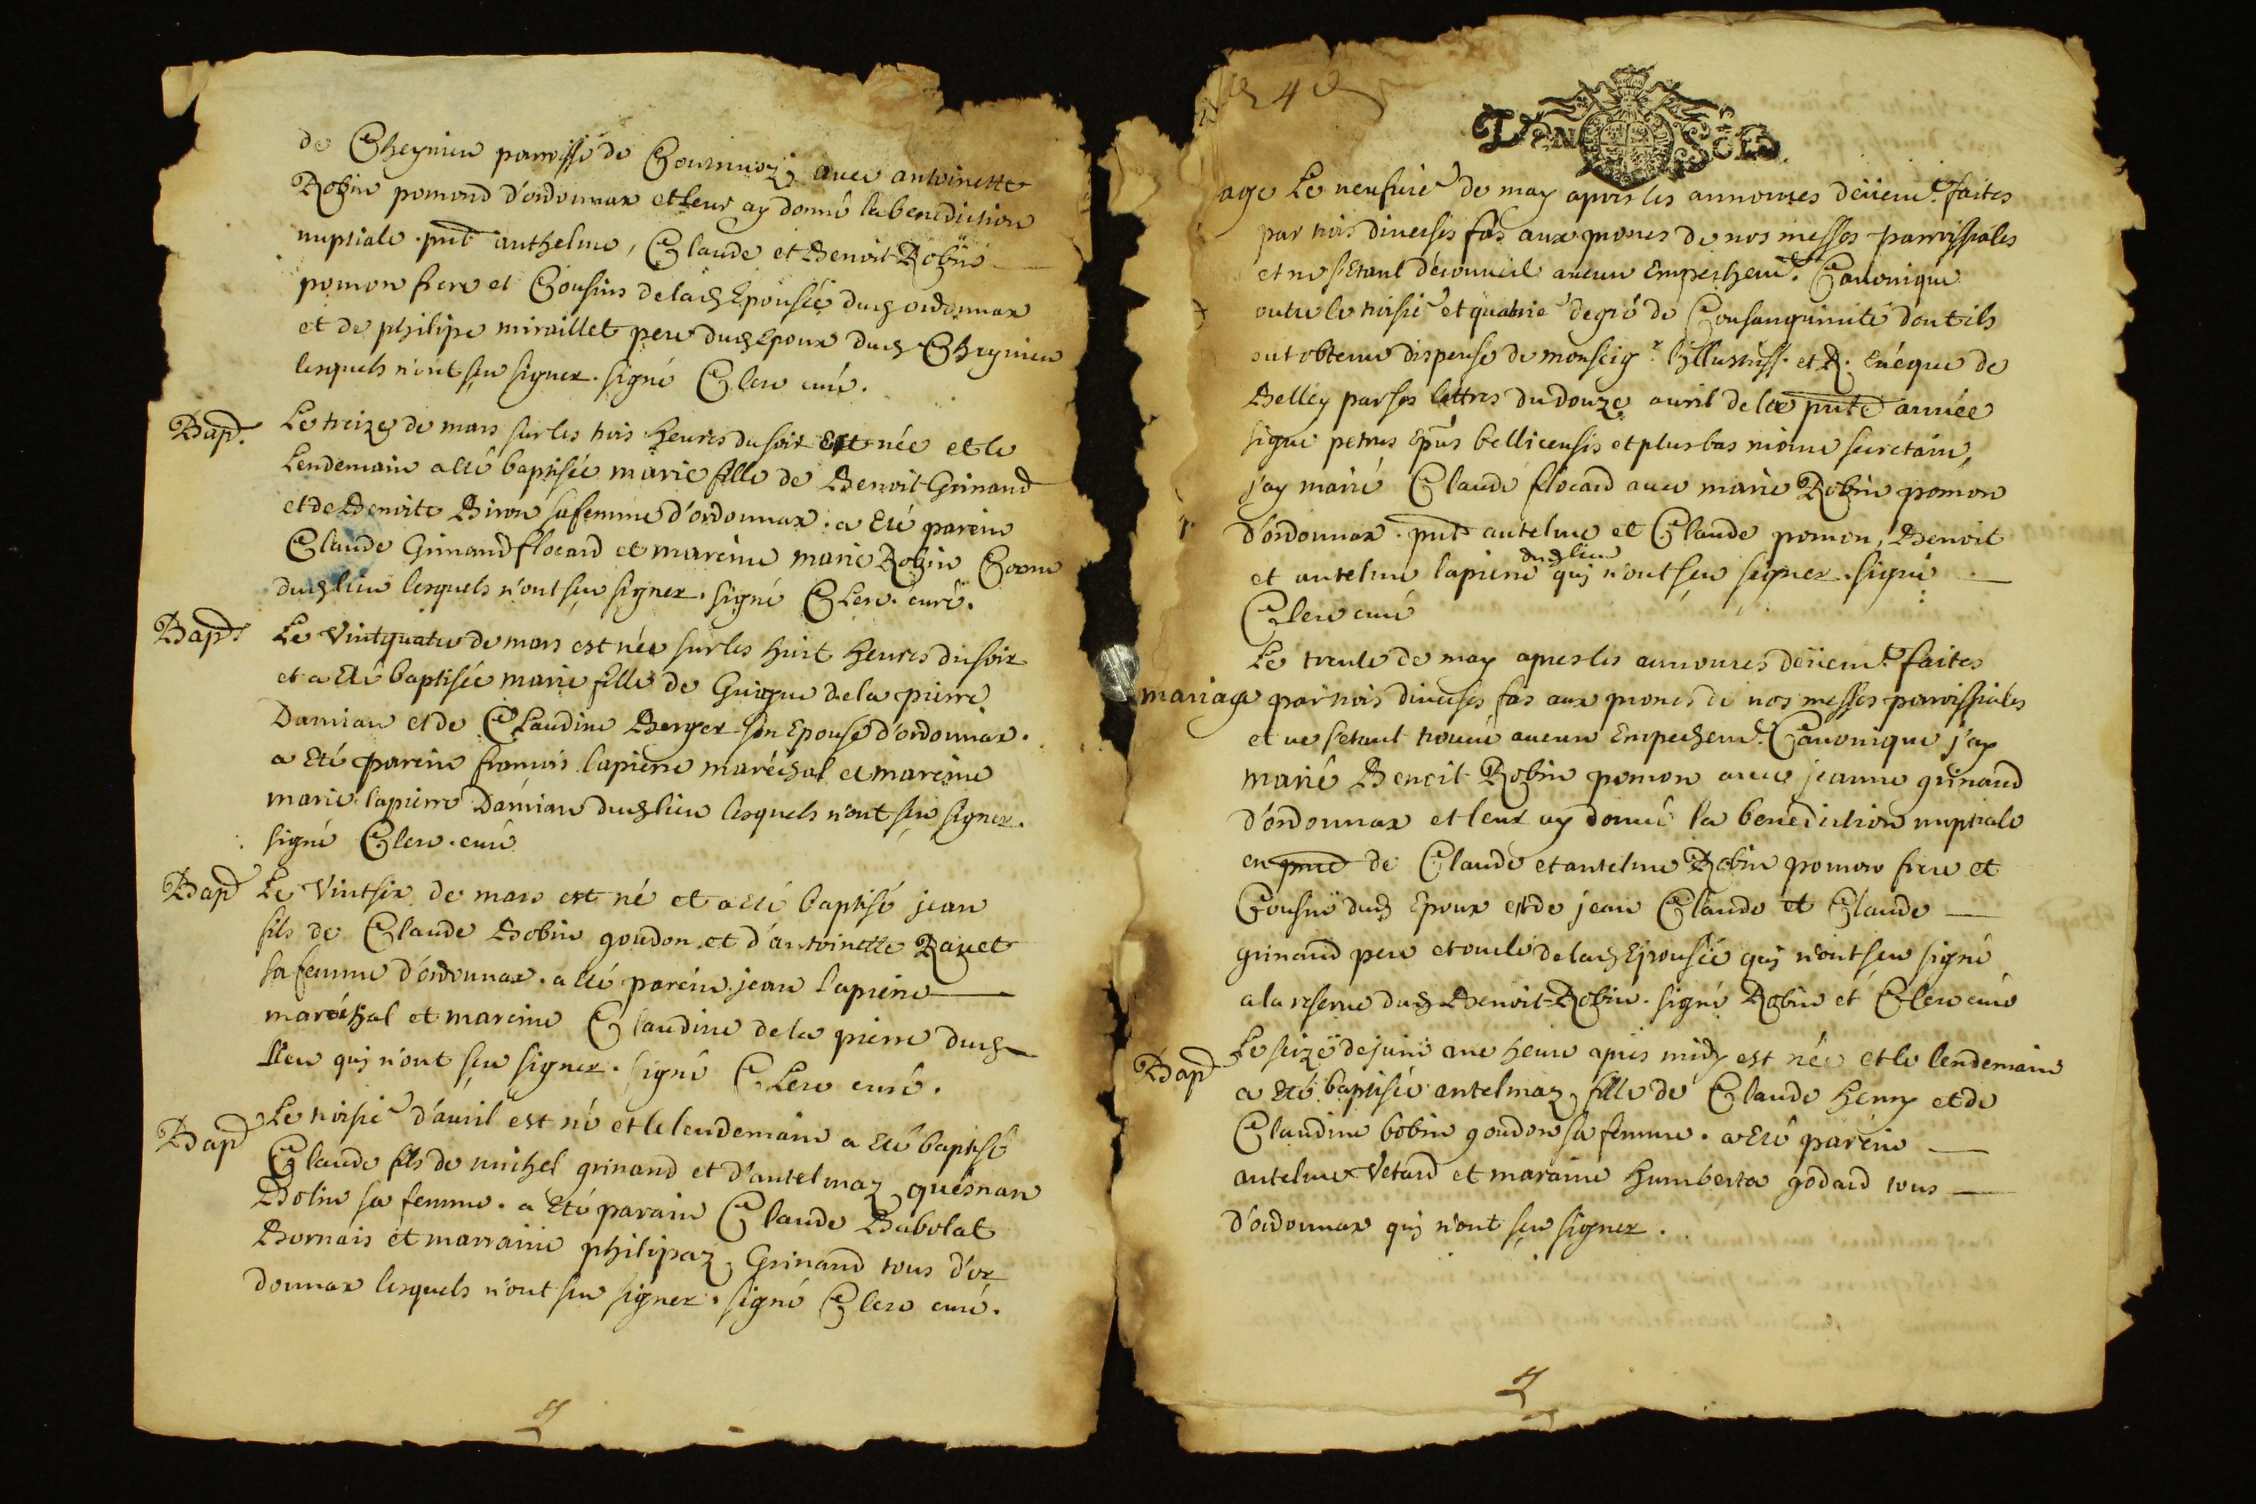 de Cheynieu parroisse de avec antoinette
Robin pomond d'ordonnax et leur ay donné la benediction
nuptiale. pnt anthelme, Claude et Benoit Robin
pomon frere et Cousins de lad Epousée dud ordonnax
et de philipe miraillet pere dud Epoux dud Cheynieu
lesquels n'ont sçu signer. signé Clerc curé.
Bap. Le treize de mars sur les trois heures du soir est née et le
Lendemain a eté baptisée marie fille de Benoit Grinand
et de Benoite Biron sa femme d'ordonnax. a Eté parein
Claude Grinand flocard et mareine marie Robin
dud lieu lesquels n'ont sçu signer. signé Clerc. curé.
Bapt Le Vintquatre de mars est née sur les huit heures du soir
et a Eté baptisée marie fille de Guigue dela pierre
Damian et de Claudine Berger son Epouse d'ordonnax.
a Eté parein francois lapierre maréchal et mareine
marie lapierre Damian dud lieu lesquels n'ont sçu signer.
signé Clerc. curé
Bap Le Vintsix de mars est né et a eté baptisé jean
fils de Claude Bobin goudon et d'antoinette Ravet
sa femme d'ordonnax. a eté parein jean lapierre
maréchal et mareine Claudine de la pierre dud
lieu qui n'ont sçu signer. signé Clerc curé.
Bap Le troisie d'avril est né et le lendemain a Eté baptisé
Claude fils de michel grinand et d'antelmaz quesnan
Bolin sa femme. a Eté parain Claude Babolat
Bornais et marraine philipaz Grinand tous d'or
donnax lesquels n'ont sçu signer. signé Clerc curé.
4
DEN SOLS
age Le neufvie de may apres les annonces deüemt faites
par trois diverses fois aux prones de nos messes parroissiales
et ne s'etant découvert aucun Empechemt. Canonique
outre le troisie et quatrie degré de Consanguinité dont ils
ont obtenu dispense de monseigr. l'Illustriss. et R. Evéque de
Belley par ses lettres du douze avril de la pnte année
signé petrus Epus bellicensis et plus bas secretaire,
j'ay marié Claude flocard avec marie Robin pomon
d'ordonnax. pnt antelme et Claude pomon, Benoit
et antelme lapierre dud lieu qui n'ont sçu signer. signé
Clerc curé
Le trente de may apres les annonces deüemt. faites
mariage par trois diverses fois aux prones de nos messes parroissiales
et ne s'etant trouvé aucun Empechemt. Canonique j'ay
marié Benoit Robin pomon avec jeanne grinand
d'ordonnax et leur ay donné la benediction nuptiale
en pnce de Claude et antelme Robin pomon frere et
Cousin dud Epoux et de jean Claude et Claude
grinand pere et oncle de lad Epousée qui n'ont sçu signé
a la reserve dud Benoit Robin. signé Robin et Clerc curé
Bap Le seize de juin une heure apres midy est née et le lendemain
a Eté baptisée antelmaz fille de Claude Henry et de
Claudine bobin goudon sa femme. a Eté parein
antelme Vetard et maraine humberta godard tous
d'ordonnax qui n'ont sçu signer.